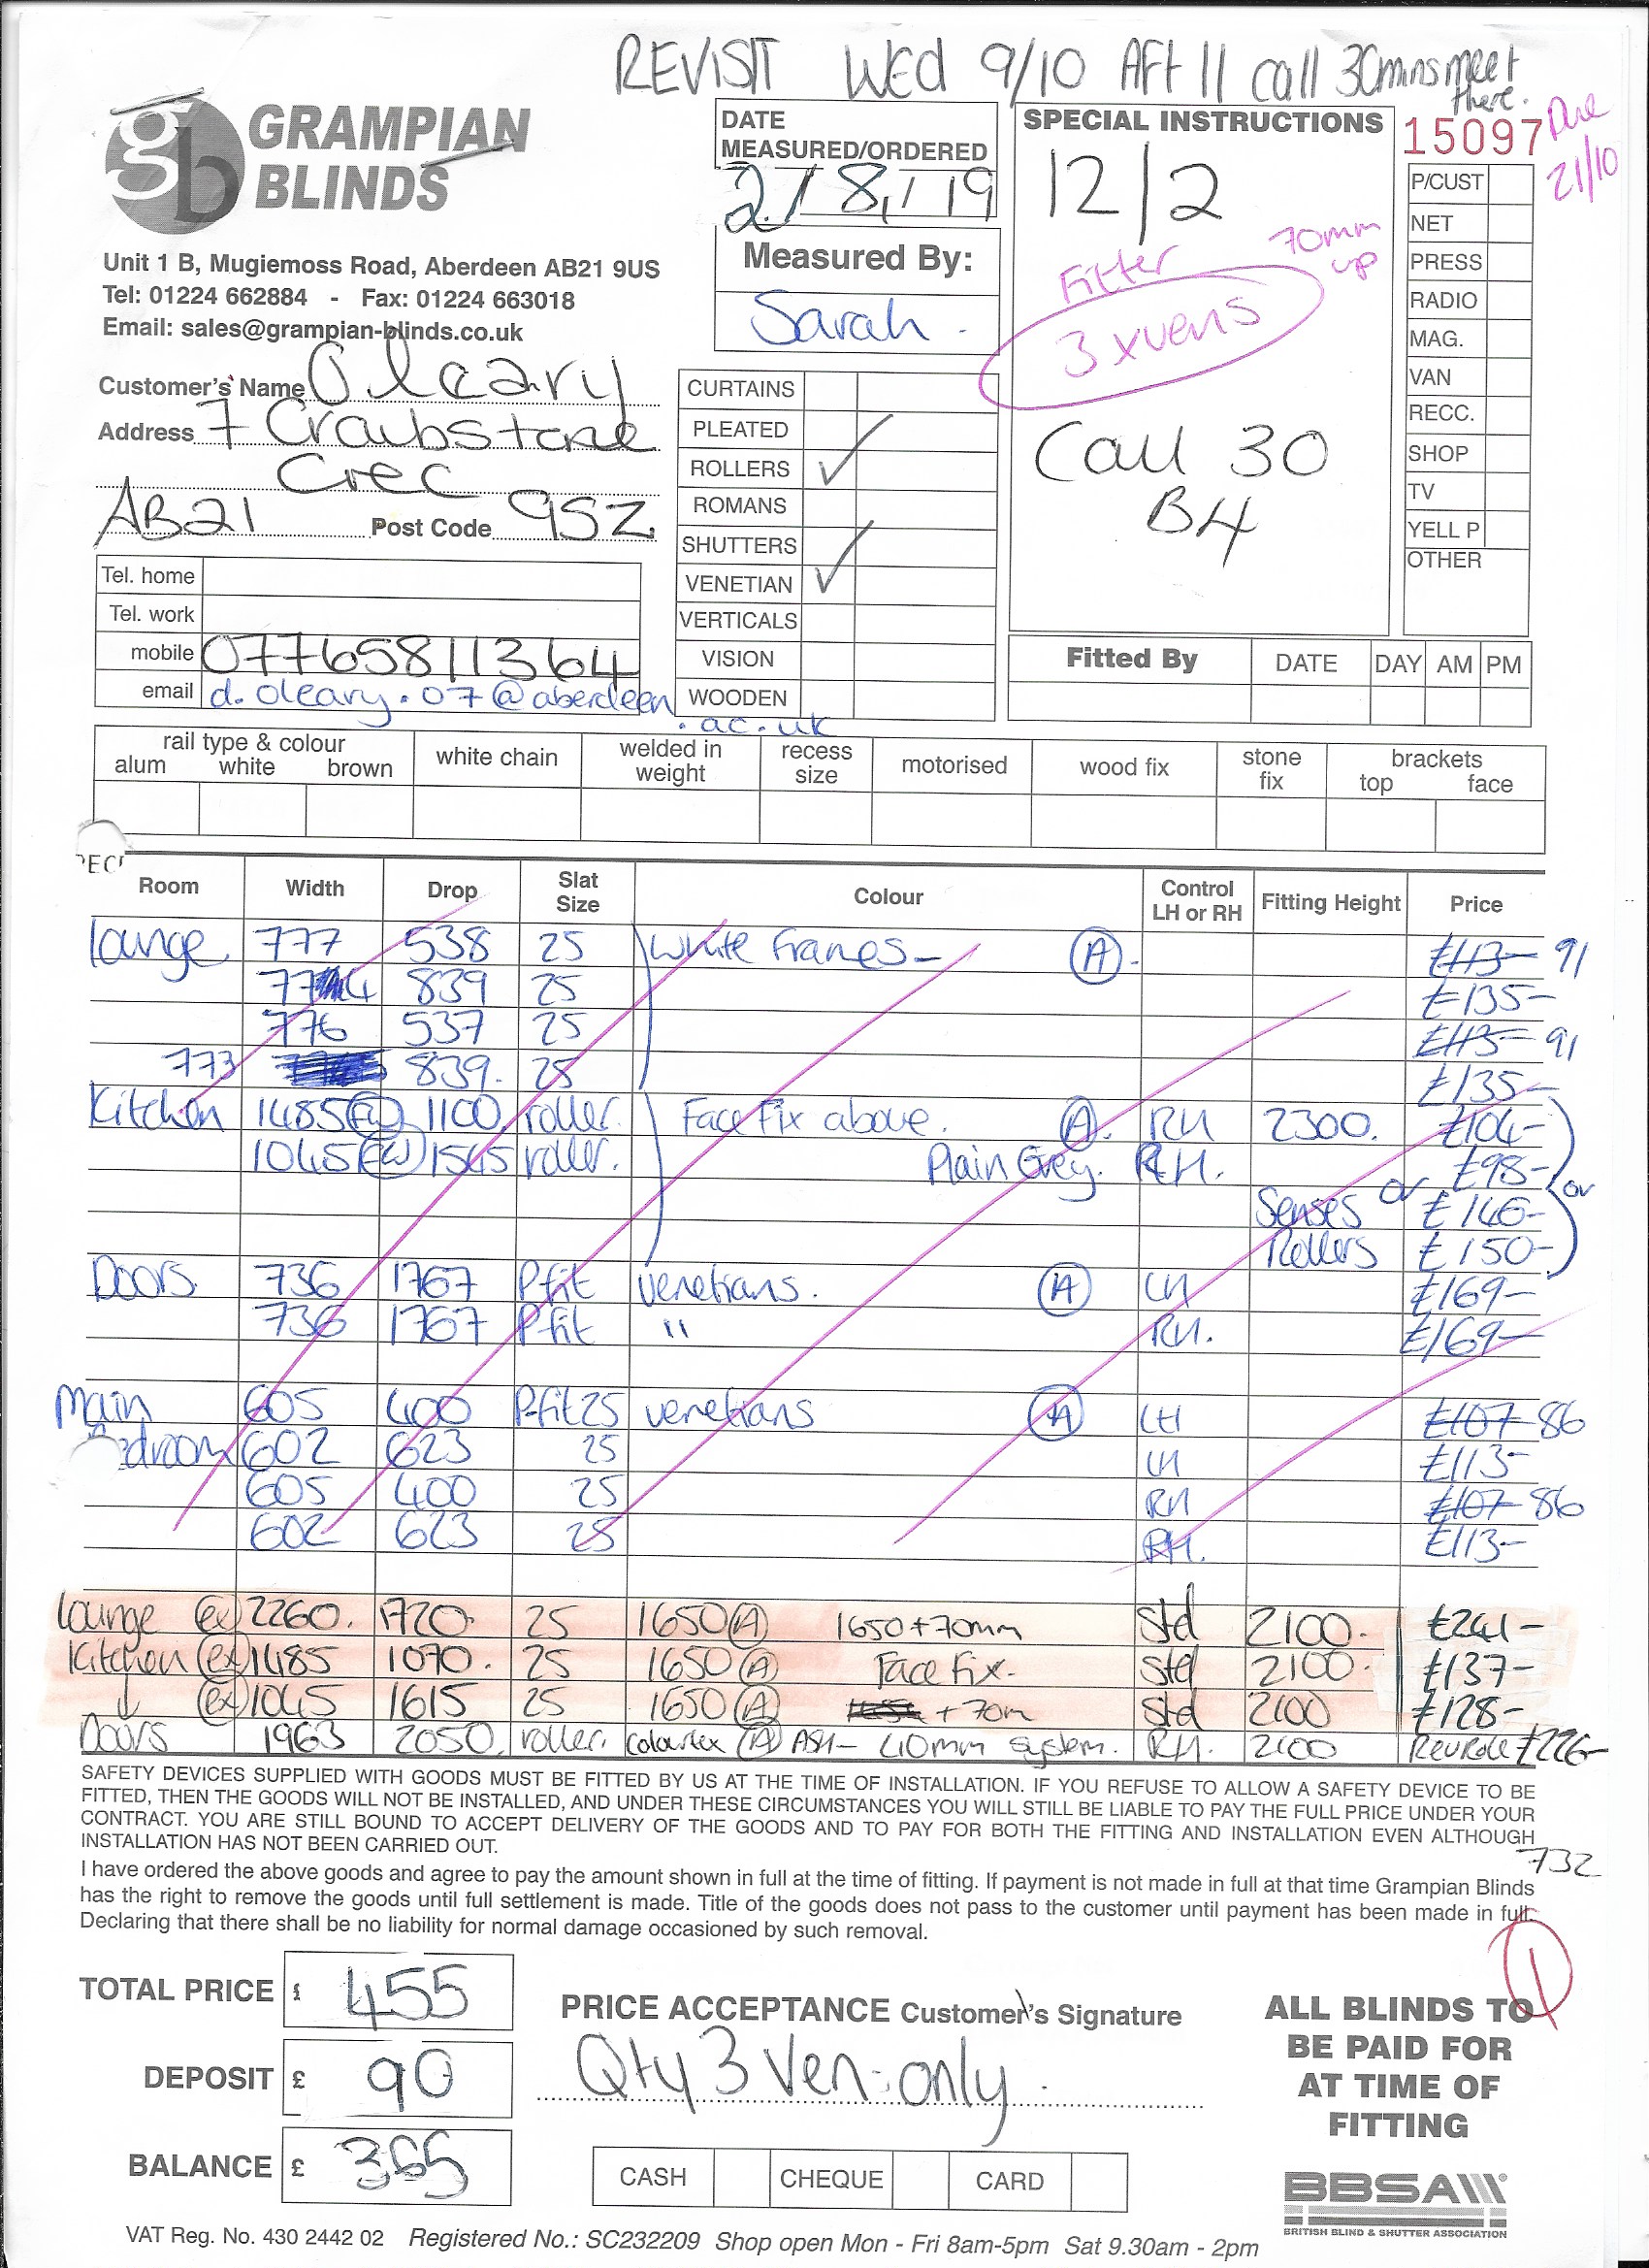 REVISIT Wed 9/10 Aft 11 call 30mins meet there.
gb GRAMPIAN BLINDS
Unit 1 B, Mugiemoss Road, Aberdeen AB21 9US
Tel: 01224 662884 - Fax: 01224 663018
Email: sales@grampian-blinds.co.uk
DATE MEASURED/ORDERED
2/8/19
Measured By:
Sarah.
SPECIAL INSTRUCTIONS
12/2
Fitter
70mm up
3 x vens
Call 30
B4
15097
Due 21/10
P/CUST
NET
PRESS
RADIO
MAG.
VAN
RECC.
SHOP
TV
YELL P
OTHER
Customer's Name Oleary
Address 7 Craibstone
Crec
AB21 Post Code 9SZ
Tel. home
Tel. work
mobile 07765811364
email d.oleary.07@aberdeen.ac.uk
CURTAINS
PLEATED
ROLLERS ✓
ROMANS
SHUTTERS
VENETIAN ✓
VERTICALS
VISION
WOODEN
Fitted By DATE DAY AM PM
rail type & colour alum white brown white chain welded in weight recess size motorised wood fix stone fix brackets top face
Room Width Drop Slat Size Colour Control LH or RH Fitting Height Price
Lounge 777 538 25 White Frames - A. £113- 91
774 839 25 £135-
776 537 25 £113- 91
773 839. 25 £135-
Kitchen 1485 1100 roller. Face Fix above. A. RH 2300. £104-
1045 1545 roller. Plain Grey. RH. £98-
Senses or £146- or
Rollers £150-
Doors. 736 1767 Pfit venetians. A LH £169-
736 1767 Pfit " RH. £169-
Main 605 400 P-fit 25 venetians A LH £107- 86
Bedroom 602 623 25 LH £113-
605 400 25 RH £107- 86
602 623 25 RH. £113-
Lounge (ex) 2260. 1720. 25 1650 A 1650+70mm Std 2100. £241-
Kitchen (ex) 1485 1070. 25 1650 A Face Fix. Std 2100. £137-
↓ (ex) 1045 1615 25 1650 A + 70m Std 2100 £128-
Doors 1963 2050. roller. A ASH - 40mm system. RH. 2100 £226-
SAFETY DEVICES SUPPLIED WITH GOODS MUST BE FITTED BY US AT THE TIME OF INSTALLATION. IF YOU REFUSE TO ALLOW A SAFETY DEVICE TO BE
FITTED, THEN THE GOODS WILL NOT BE INSTALLED, AND UNDER THESE CIRCUMSTANCES YOU WILL STILL BE LIABLE TO PAY THE FULL PRICE UNDER YOUR
CONTRACT. YOU ARE STILL BOUND TO ACCEPT DELIVERY OF THE GOODS AND TO PAY FOR BOTH THE FITTING AND INSTALLATION EVEN ALTHOUGH
INSTALLATION HAS NOT BEEN CARRIED OUT.
732
I have ordered the above goods and agree to pay the amount shown in full at the time of fitting. If payment is not made in full at that time Grampian Blinds
has the right to remove the goods until full settlement is made. Title of the goods does not pass to the customer until payment has been made in full.
Declaring that there shall be no liability for normal damage occasioned by such removal.
1
TOTAL PRICE £ 455
DEPOSIT £ 90
BALANCE £ 365
PRICE ACCEPTANCE Customer's Signature
Qty 3 Ven. only.
CASH CHEQUE CARD
ALL BLINDS TO
BE PAID FOR
AT TIME OF
FITTING
BBSA
BRITISH BLIND & SHUTTER ASSOCIATION
VAT Reg. No. 430 2442 02 Registered No.: SC232209 Shop open Mon - Fri 8am-5pm Sat 9.30am - 2pm